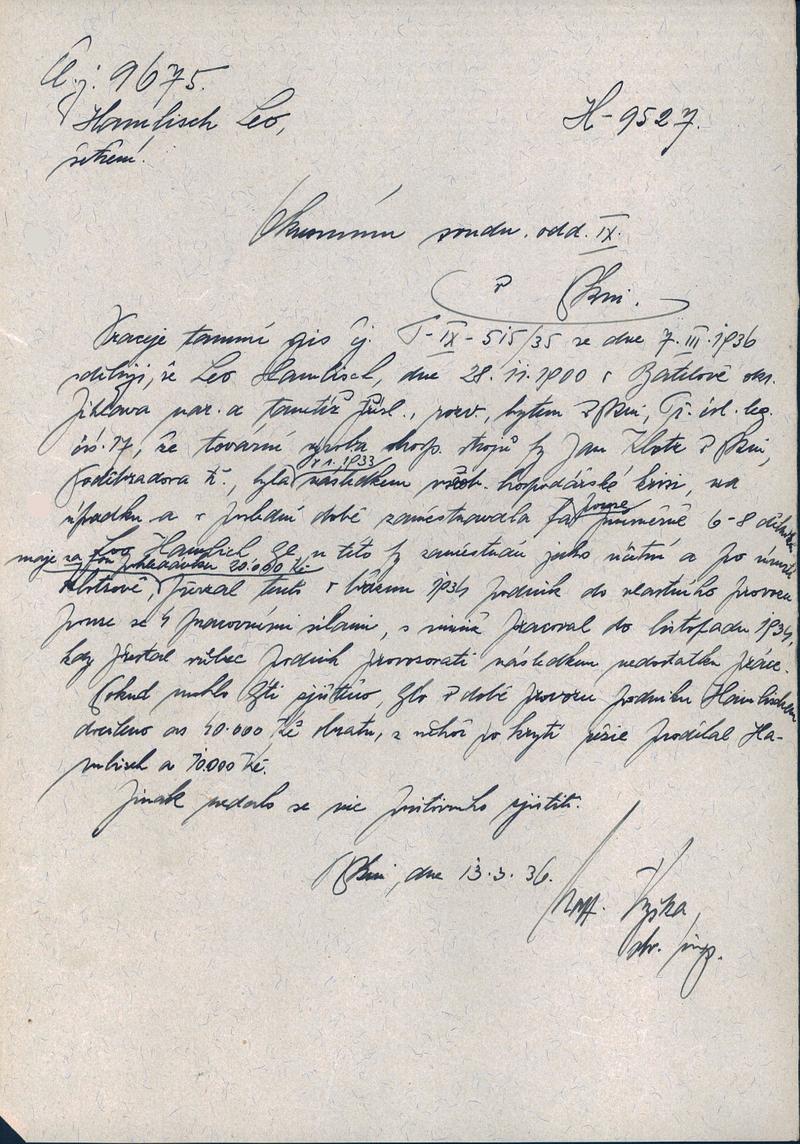 Č.j. 9675.
Hamlisch Leo, H-9527.
šetření.
Okresnímu soudu. odd. IX.
v Brně.
Vraceje tamní spis čj. T-IX-515/35 ze dne 7.III.1936
sděluji, že Leo Hamlisch, dne 28.11.1900 v Batelově okr.
Jihlava nar. a tamtéž přísl., rozv., bytem v Brně, Tř. čsl. leg.
čís. 17, že tovární výroba hosp. strojů fy Jan Klotz v Brně,
v r. 1933
Poděbradova ř., byla následkem všeob. hospodářské krise, na
pouze
úpadku a v poslední době zaměstnávala průměrně 6-8 dělníků.
Leo Hamlisch byl u této fy zaměstnán jako účetní a po
maje za fou pohledávku 20.000 Kč.
Klotzově, převzal tento v březnu 1934 podnik do vlastního provozu
pouze se 4 pracovními silami, s nimiž pracoval do listopadu 1934,
kdy přestal vůbec podnik provozovati následkem nedostatku práce.
Pokud mohlo býti zjištěno, bylo v době provozu podniku Hamlischem
docíleno as 40.000 Kč obratu, z něhož po krytí režie prodělal Ha-
mlisch a 10.000 Kč.
Jinak nedalo se nic positivního zjistiti.
Brno, dne 13.3.36.
insp.